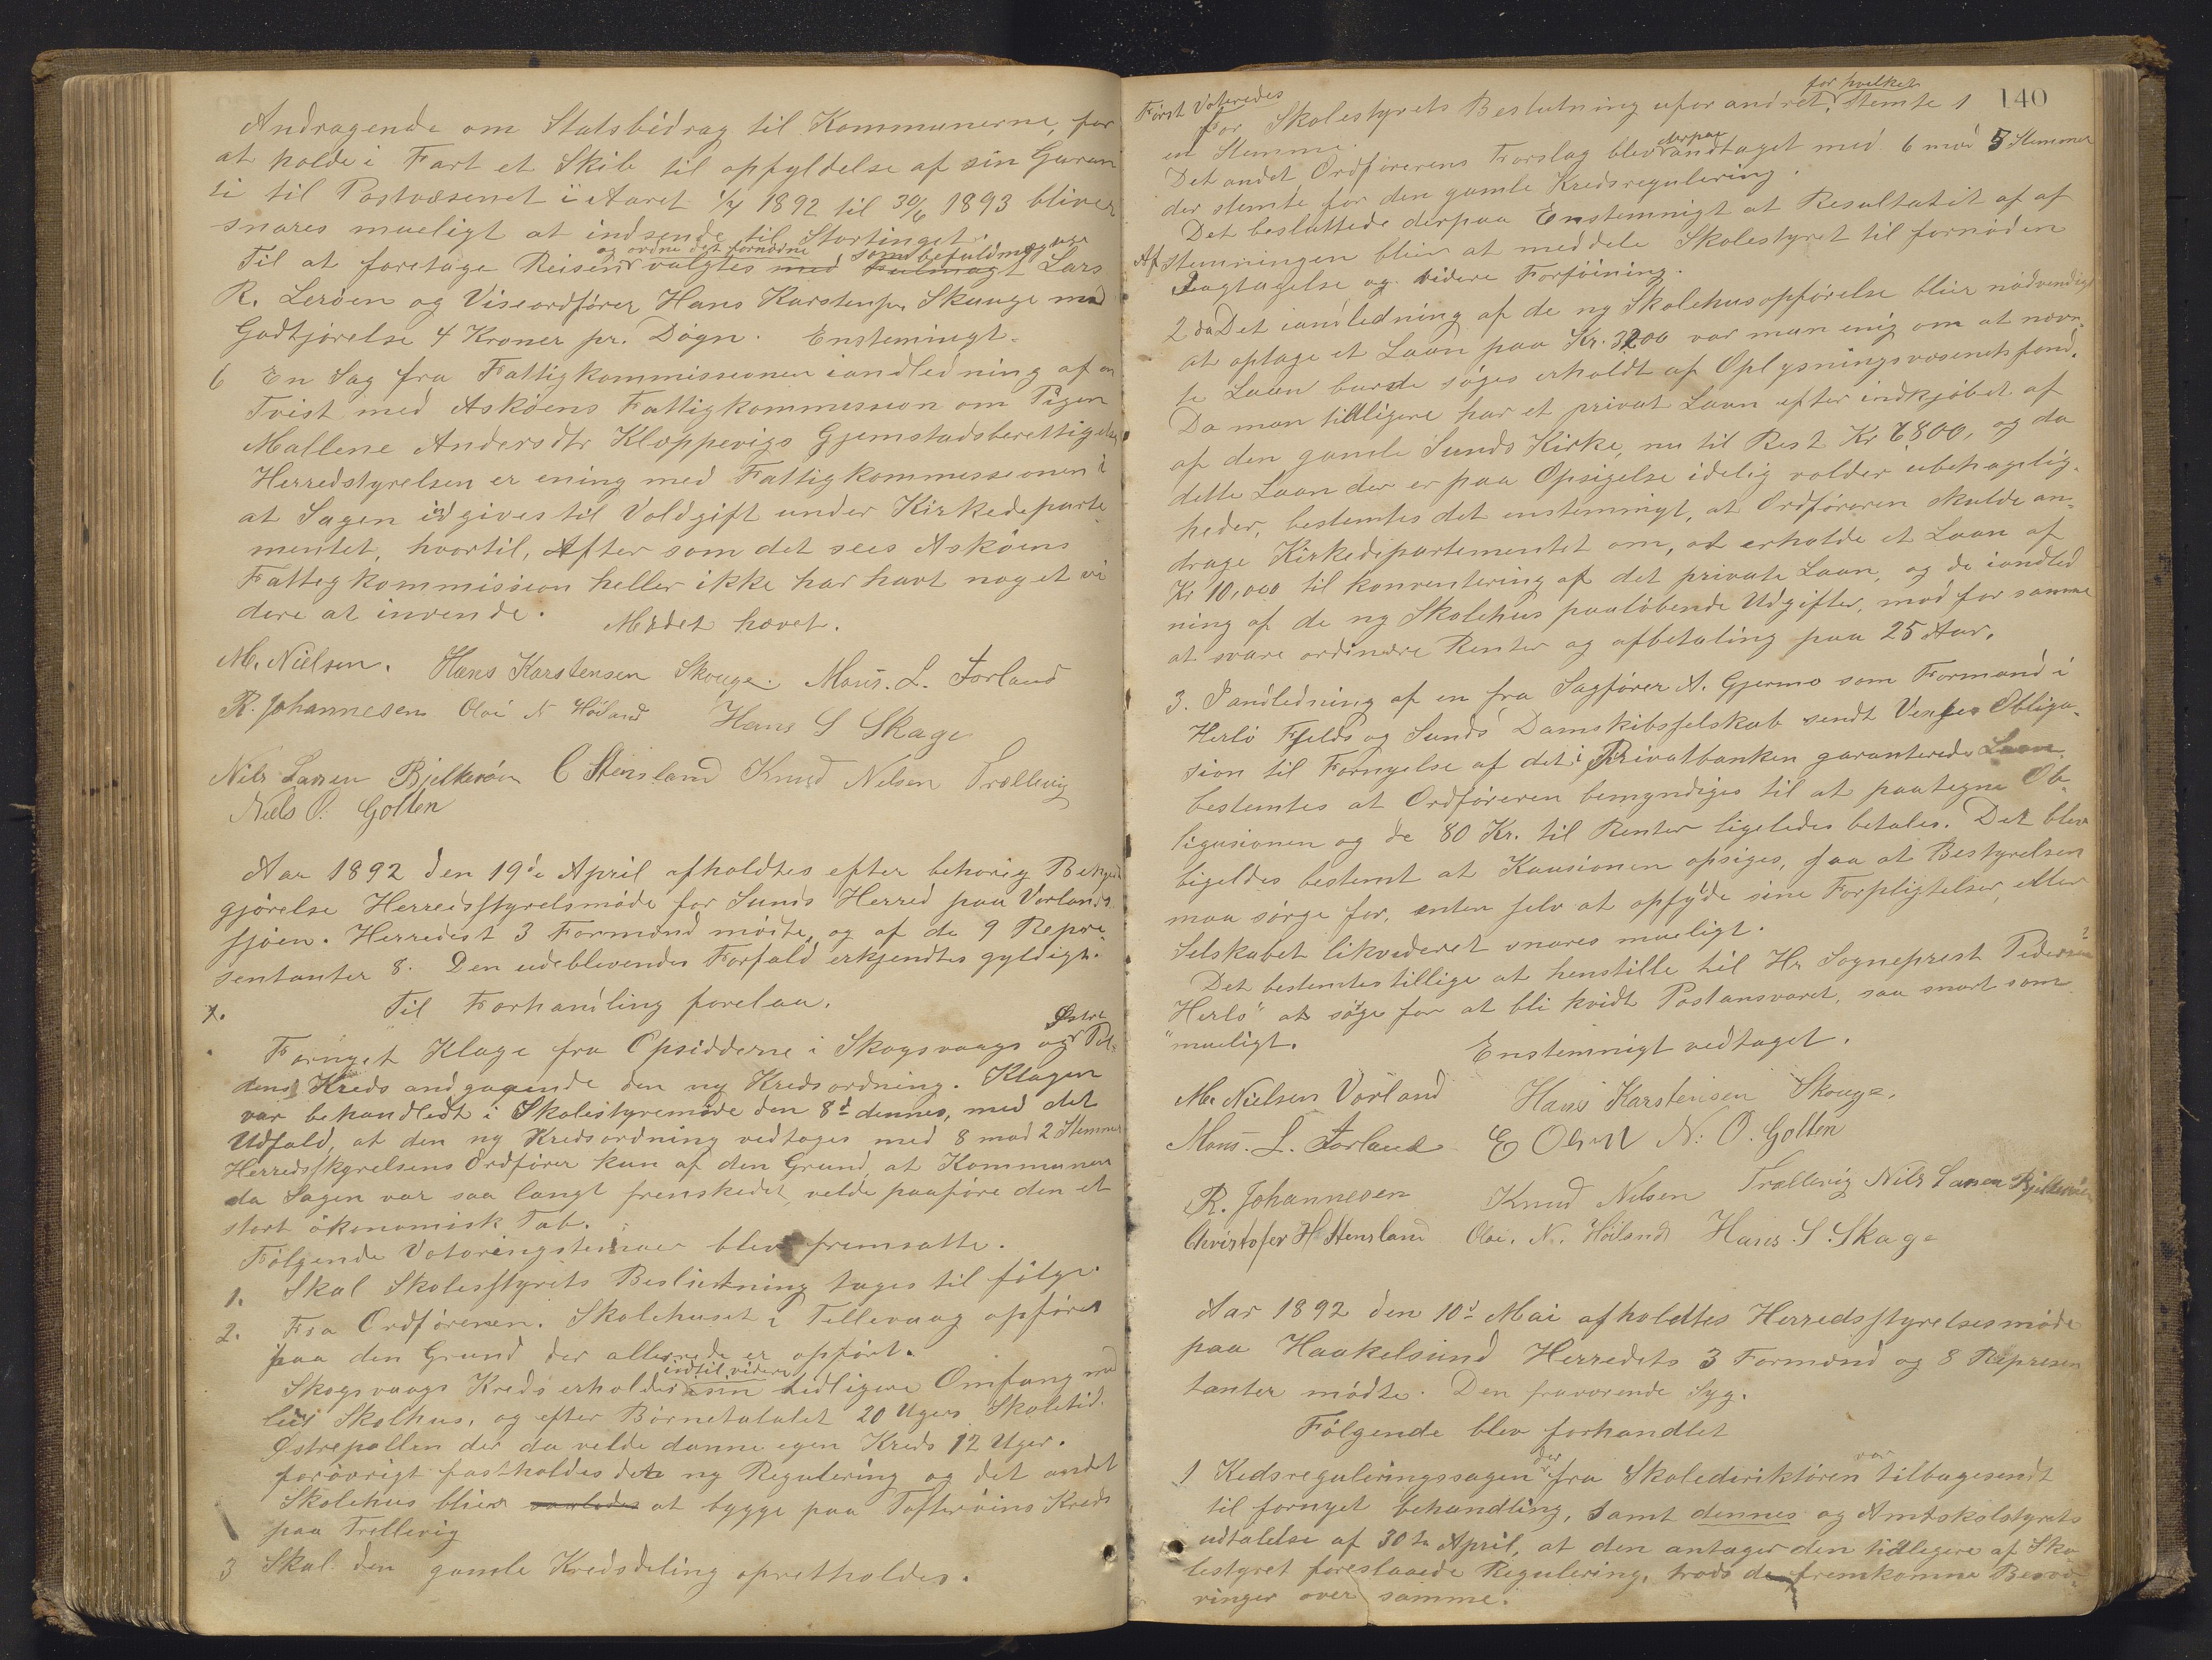 Andragende om Statsbidrag til Kommunerne, for
at holde i Fart et Skib til opfyldelse af sin Garan
ti til Postvæsenet i Aaret 1/7 1892 til 30/6 1893 bliver
snares mueligt at indsende til Stortinget.
og ordne det fornødne som befuldmægtige
Til at foretage Reisen valgtes med Fulmagt Lars
R. Lerøen og Viseordfører Hans Karstensen Skauge mod
Godtjørelse 4 Kroner pr. Døgn. Enstemmigt.
6 En Sag fra Fattigkommissionen iandledning af en
Tvist med Askøens Fattigkommission om Pigen
Mallene Andersdtr Kloppevigs Hjemstadsberettigelse
Herredstyrelsen er ening med Fattigkommissionen i
at Sagen indgives til Voldgift under Kirkedeparte
mentet, hvortil, Efter som det sees Askøens
Fattigkommission heller ikke har havt noget vi
dere at invende. Mødet hævet.
M. Nielsen. Hans Karstensen Skouge. Mons. L. Forland
R. Johannesen Oloi N Høiland Hans S Skage
Nils Larsen Bjelkerøen C Stensland Knud Nilsen Trællevig
Niels O. Golten
Aar 1892 den 19de April afholdtes efter behørig Bekjend
gjørelse Herredsstyrelsmøde for Sunds Herred paa Vorlands
sjøen. Herredest 3 Formænd mødte, og af de 9 Repre
sentanter 8. Den udeblevendes Forfald erkjendtes gyldigt.
Til Forhandling forelaa.
1.
Østre
Fornyet Klage fra Opsidderne i Skogsvaags og Pol
dens Kreds andgaaende den ny Kredsordning. Klagen
var behandledt i Skolestyremøde den 8d dennes, med det
Udfald, at den ny Kredsordning vedtages med 8 mod 2 Stemmer
Herredsstyrelsens Ordfører kun af den Grund, at Kommunen
da Sagen var saa langt fremskedet, velde paaføre den et
stort økonomisk Tab.
Følgende Votoringstemaer blev fremsatte.
1. Skal Skolesstyrets Beslutning tages til følge.
2. Fra Ordføreren. Skolehuset i Tellevaag opføres
paa den Grund der allerede er opført.
indtil videre
Skogsvaags Kreds erholder sin tidligere Omfang med
leiet Skolhus, og efter Børnetalalet 20 Ugers Skoletid.
Østrepollen der da velde danne egen Kreds 12 Uger.
forøvrigt fastholdes den ny Regulering og det andet
Skolehus bliver at bygge paa Tofterøens Kreds
paa Trellevig
3 Skal den gamle Kredsdeling opretholdes.
140
for hvilket
Først Voteredes
for Skolestyrets Beslutning uforandret, Stemte 1
en Stemme.
derpaa
Det andet Ordførerens Forslag blev andtaget med 6 mod 5 Stemmer
der stemte for den gamle Kredsregulering.
Det besluttede derpaa Enstemmigt at Resultatit af af
Afstemningen bliver at meddele Skolestyret til fornøden
Iagtagelse og videre Forføining.
2. da Det iandledning af de ny Skolehusopførelse bliver nødvendigt
at optage et Laan paa Kr. 3200 var man enig om at nævn
te Laan burde søges erholdt af Oplysningsvæsenets fond.
Da man tidligere har et privat Laan efter indkjøbet af
af den gamle Sunds Kirke, nu til Rest Kr 6800, og da
dette Laan der er paa Opsigelse idelig volder ubehagelig
heder, bestemtes det enstemmigt, at Ordføreren skulde an
drage Kirkedepartementet om, at erholde et Laan af
Kr 10,000 til konventering af det private Laan, og de iandled
ning af de ny Skolehus paaløbende Udgifter, mod for samme
at svare ordinære Renter og afbetaling paa 25 Aar.
3. Iandledning af en fra Sagfører A. Gjermo som Formand i
Herlø Fjelds og Sunds Damskibsselskab sendt Obliga
sion til Fornyelse af det i Privatbanken garanterede Laan
bestemtes at Ordføreren bemyndiges til at paategne Ob
ligasionen og de 80 Kr. til Renter ligeledes betales. Det blev
ligeldes bestemt at Kausionen opsiges, saa at Bestyrelsen
maa sørge for, enten selv at opfyde sine Forpligtelser, eller
Selskabet likvideret snares mueligt.
Det bestemtes tillige at henstille til Hr Sogneprest Pedersen i
Herlø at søge for at bli kvidt Postansvaret, saa snart som
mueligt. Enstemmigt vedtaget.
M. Nielsen Vorland Hans Karstensen Skouge.
Mons. L. Forland E Olsen N. O. Golten
R. Johannesen Knud Nilsen Trællevig Nils Larsen Bjelkerøen
Christofer H Stensland Oloi. N. Høiland Hans. S. Skage
Aar 1892 den 10d Mai afholdtes Herredsstyrelsesmøde
paa Haakelsund Herredets 3 Formænd og 8 Represen
tanter mødte. Den fraværende Syg.
Følgende blev forhandlet
der var
1 Kedsreguleringssagen fra Skolederiktøren tilbagesendt
til fornyet behandling, samt dennes og Amtskolstyrets
udtalelse af 30te April, at den antager den tidligere af Sko
lestyret foreslaaede Regulering, trods de fremkomne Besvæ
ringer over samme.